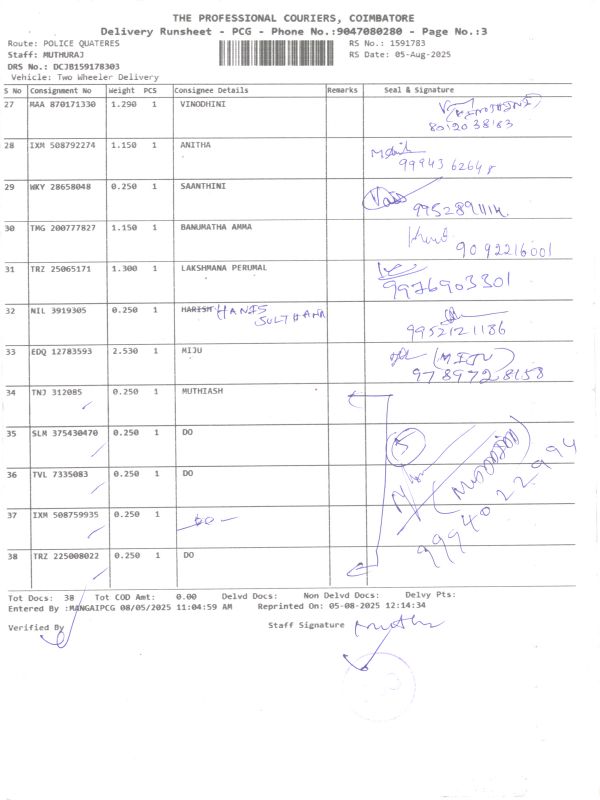 THE PROFESSIONAL COURIERS, COIMBATORE
Delivery Runsheet - PCG - Phone No.:9047080280 - Page No.:3
Route: POLICE QUATERES RS No.: 1591783
Staff: MUTHURAJ RS Date: 05-Aug-2025
DRS No.: DCJB159178303
Vehicle: Two Wheeler Delivery
S No Consignment No Weight PCS Consignee Details Remarks Seal & Signature
27 MAA 870171330 1.290 1 VINODHINI (VINOTHINI)
8012038183
28 IXM 508792274 1.150 1 ANITHA
9994362648
29 WKY 28658048 0.250 1 SAANTHINI
9952891114
30 TMG 200777827 1.150 1 BANUMATHA AMMA
9092216001
31 TRZ 25065171 1.300 1 LAKSHMANA PERUMAL
9976903301
32 NIL 3919305 0.250 1 HARISH HANIS
SULTHANA
9952121186
33 EDQ 12783593 2.530 1 MIJU (MIJU)
9789728158
34 TNJ 312085 0.250 1 MUTHIASH
35 SLM 375430470 0.250 1 DO 5
36 TVL 7335083 0.250 1 DO
37 IXM 508759935 0.250 1 DO
9994022994
38 TRZ 225008022 0.250 1 DO
Tot Docs: 38 Tot COD Amt: 0.00 Delvd Docs: Non Delvd Docs: Delvy Pts:
Entered By :MANGAIPCG 08/05/2025 11:04:59 AM Reprinted On: 05-08-2025 12:14:34
Verified By Staff Signature